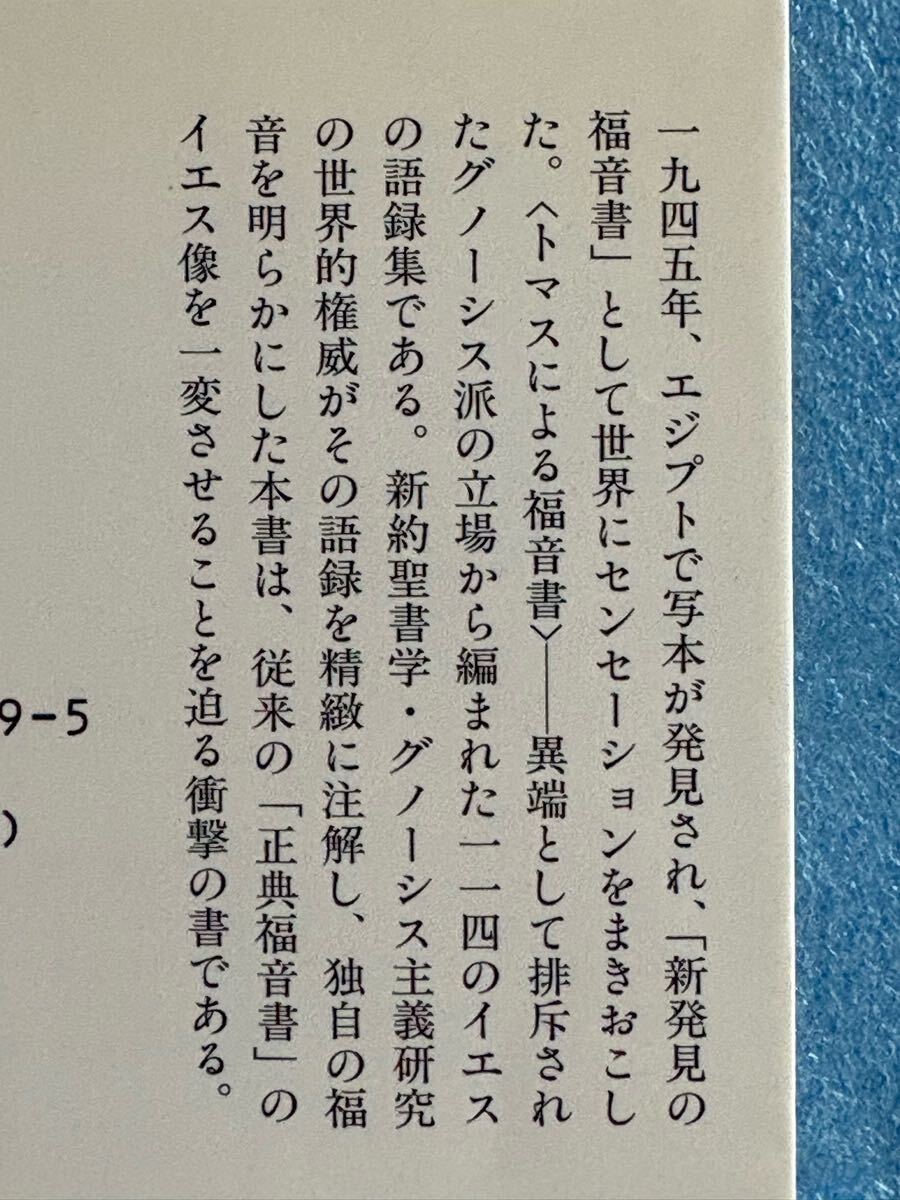 一九四五年、エジプトで写本が発見され、「新発見の
福音書」として世界にセンセーションをまきおこし
た。〈トマスによる福音書〉――異端として排斥され
たグノーシス派の立場から編まれた一一四のイエス
の語録集である。新約聖書学・グノーシス主義研究
の世界的権威がその語録を精緻に注解し、独自の福
音を明らかにした本書は、従来の「正典福音書」の
イエス像を一変させることを迫る衝撃の書である。
9-5
)